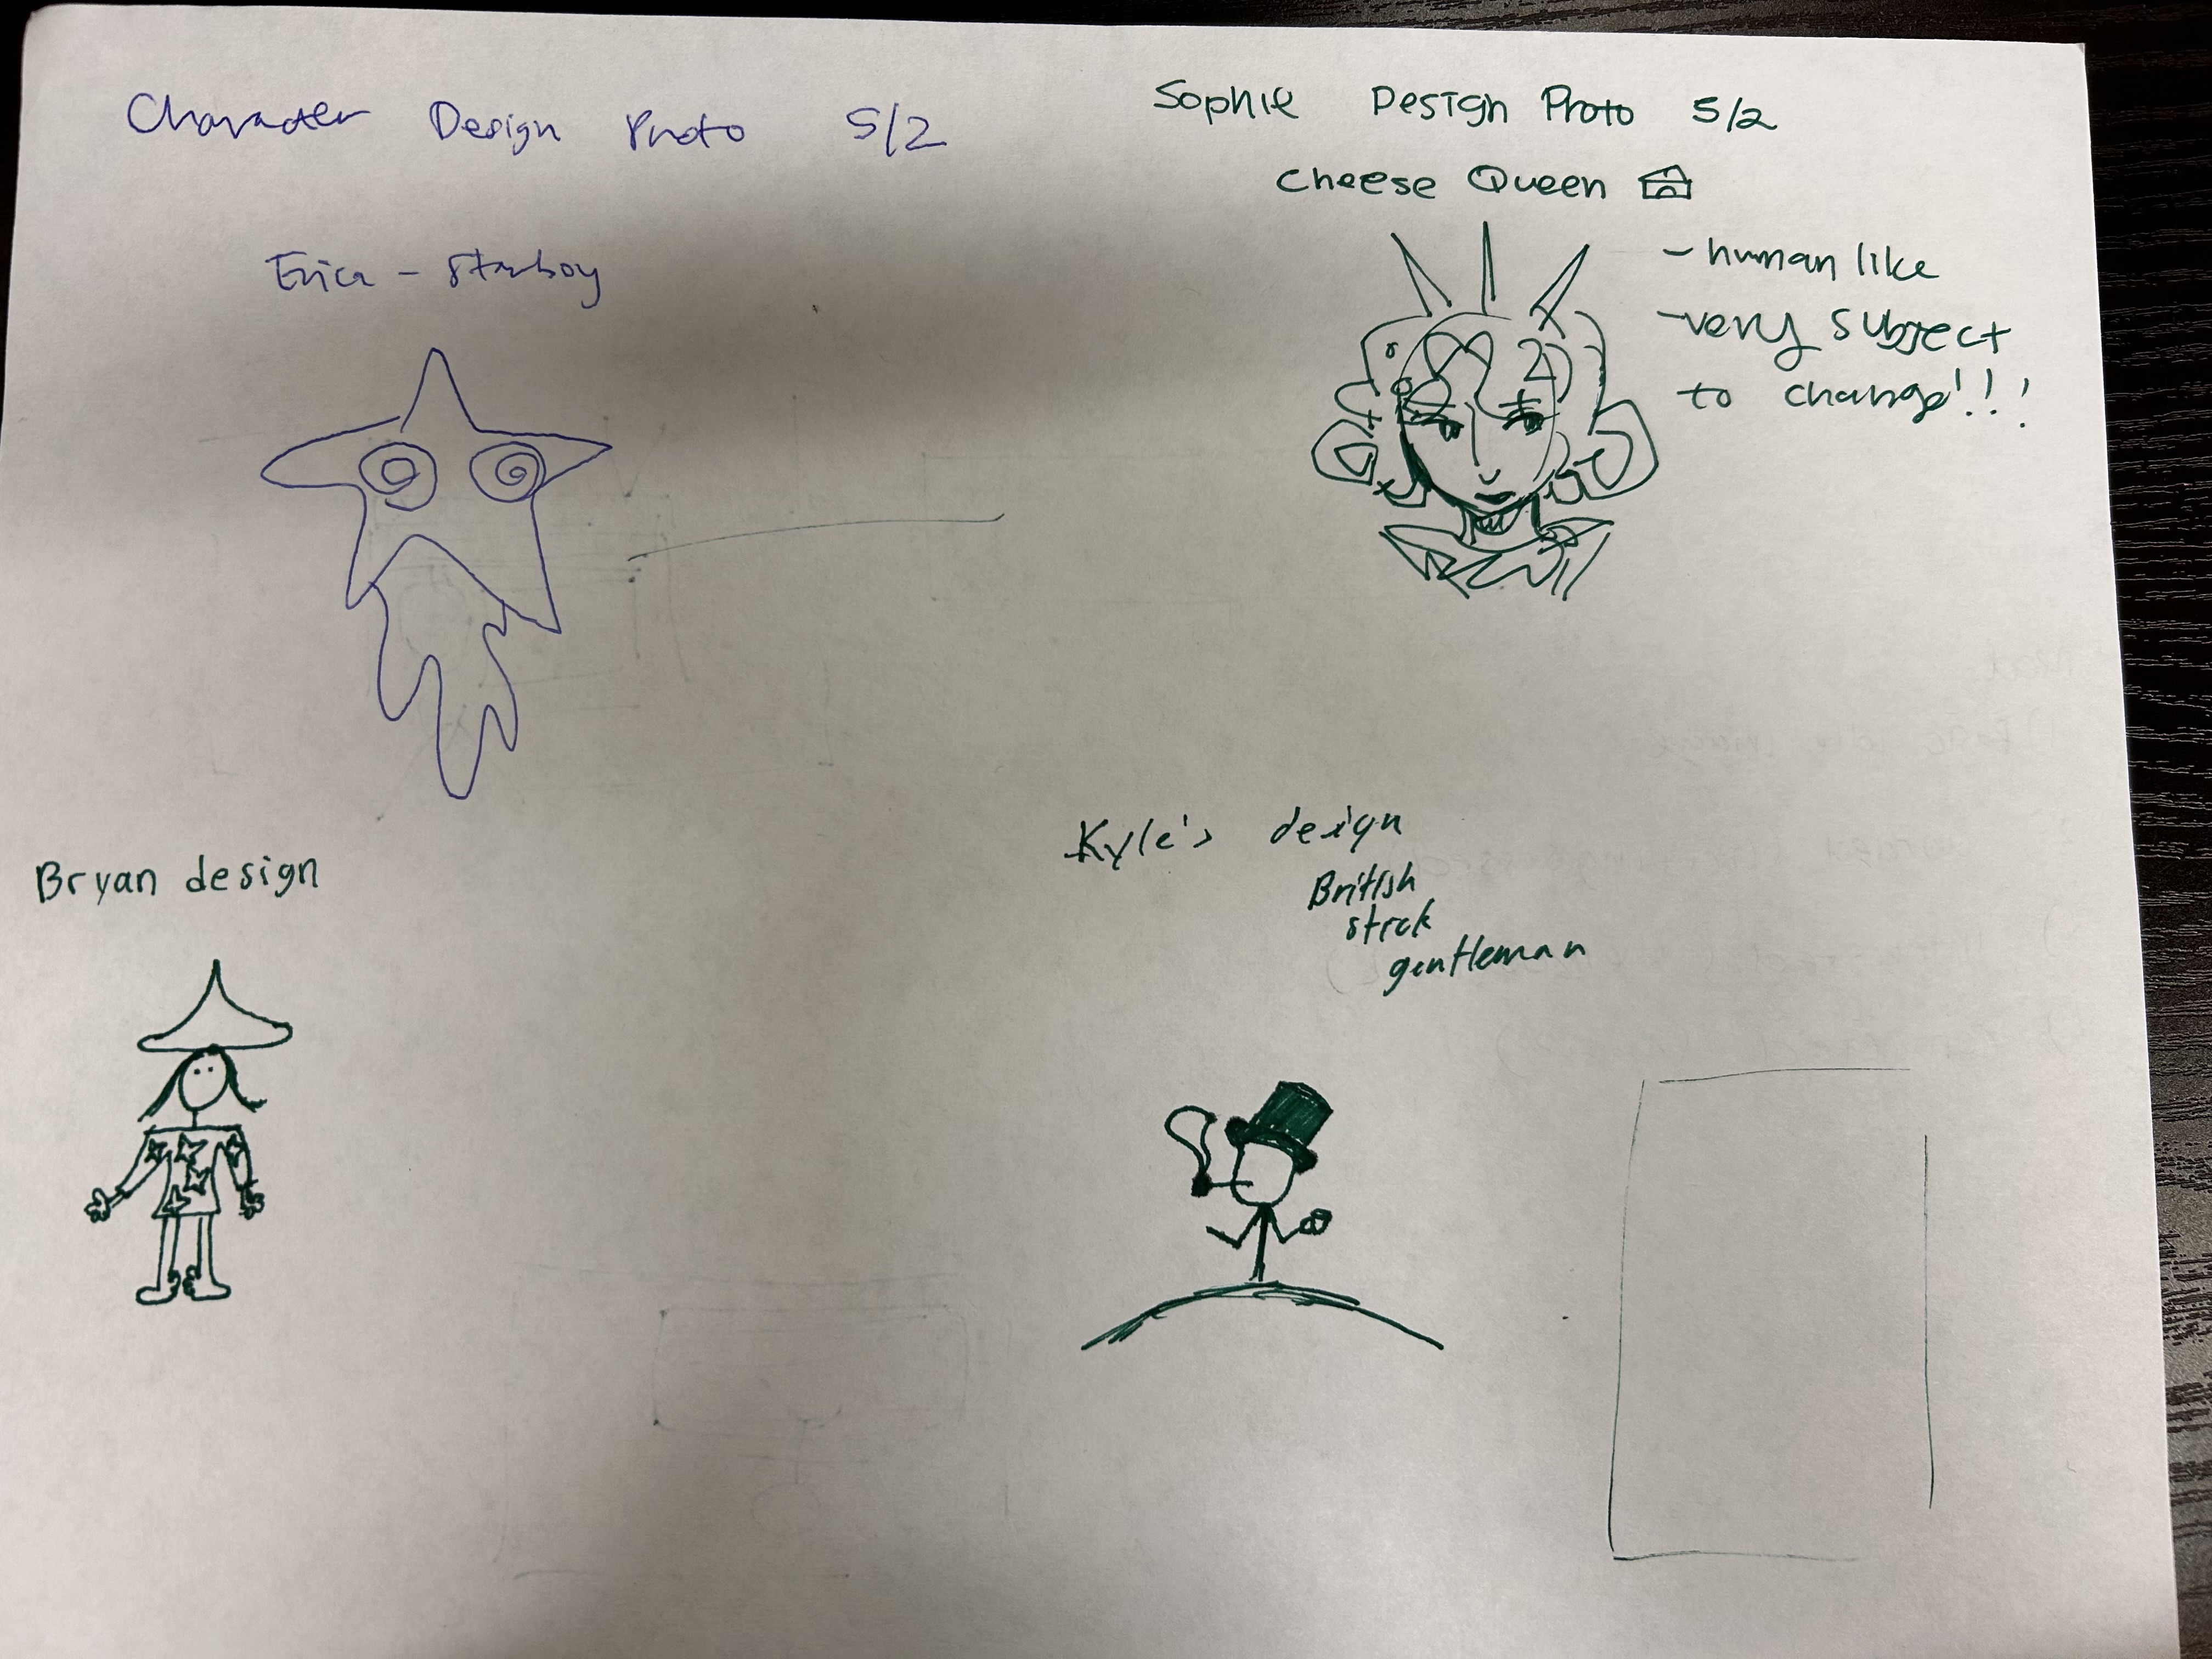 Character Design Proto 5/2
Erica - Starboy
Sophie Design Proto 5/2
Cheese Queen
- human like
- very subject
to change!!!
Bryan design
Kyle's design
British
stick
gentleman